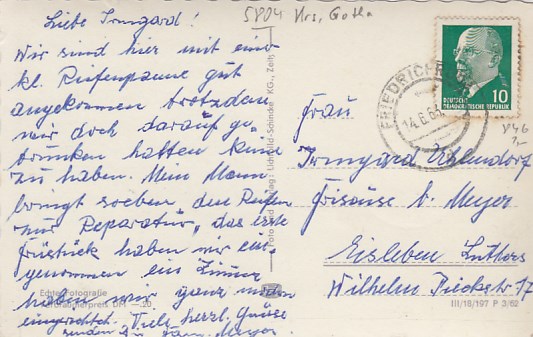 5804 Krs. Gotha
Liebe Irmgard!
Wir sind hier mit einer
kl. Reifenpanne gut
angekommen trotzdem
wir doch darauf ge-
trunken hatten keine
zu haben. Mein Mann
bringt soeben den Reifen
zur Reparatur, das erste
Frühstück haben wir ein-
genommen ein Zimmer
haben wir ganz modern
eingerichtet. Viele herzl. Grüße
senden Meyer.
Echte Fotografie
Verbraucherpreis DM -.20
Foto und Verlag: Lichtbild-Schincke KG., Zeitz
DEUTSCHE
DEMOKRATISCHE REPUBLIK
10
FRIEDRICHRODA
14.6.64
Frau
Irmgard
Friseuse b. Meyer
Eisleben Luthers
Wilhelm Pieckstr 17
III/18/197 P 3/62